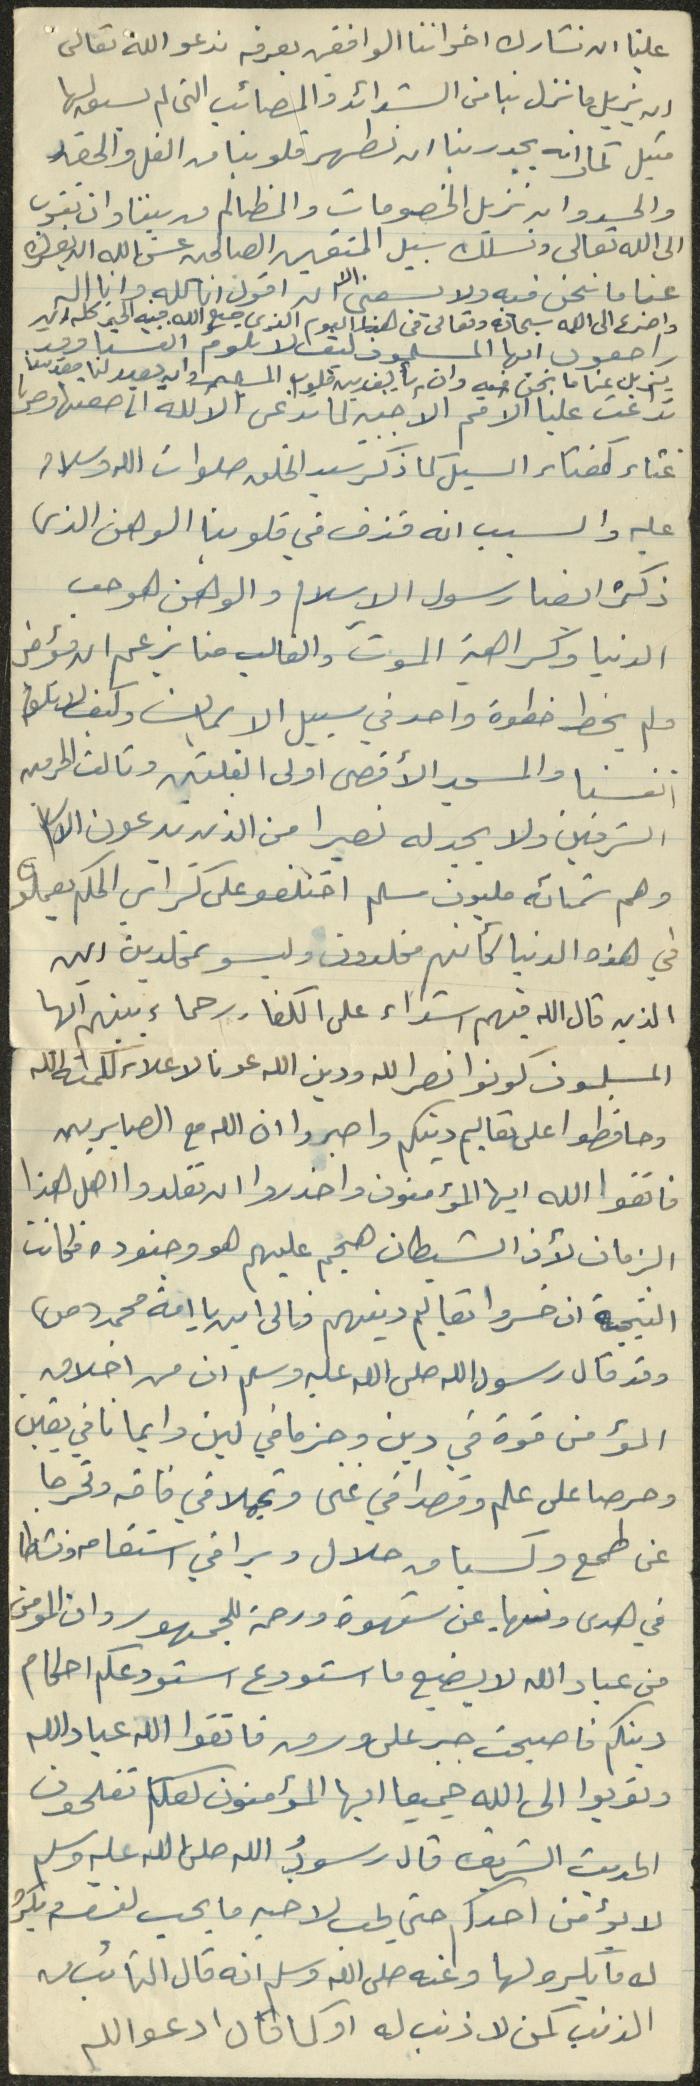 علينا ان نشارك اخواننا الواقفين بعرفه ندعو الله تعالى
ان يزيل ما نزل بنا من الشدائد والمصائب التي لم يسبق لها
مثيل كما انه يجدر بنا ان نطهر قلوبنا من الغل والحقد
والحسد وان نزيل الخصومات والمظالم من بيننا وان نتوب
الى الله تعالى ونسلك سبيل المتقين الصالحين عسى الله ان يفرج
عنا ما نحن فيه ولا يسعني الا ان اقول انا لله وانا اليه
واضرع الى الله سبحانه وتعالى في هذا اليوم الذي جميع الله فيه الخير كله ان
راجعون ايها المسلمون كيف لا نلوم انفسنا وقد
يزيل عنا ما نحن فيه وان يأليف بين قلوب المسلمين وان يعيد لنا مقدسنا
تداعت علينا الامم الاجنبيه كما تداعى الأكله الى صعتها وصرنا
غثاء كغثاء السيل كما ذكر سيد الخلق صلوات الله وسلامه
عليه والسبب انه قذف في قلوبنا الوهن الذي
ذكره ايضا رسول الاسلام والوهن هو حب
الدنيا وكراهية الموت والغالب منا يزعم انه مؤمن
ولم يخط خطوة واحد في سبيل الايمان وكيف لا نلوم
انفسنا والمسجد الأقصى اولى القبلتين وثالث الحرمين
الشرفين ولا يجد له نصيرا من الذين يدعون الاسلام
وهم ثمانه مليون مسلم اختلفو على كراسي الحكم يعملون
في هذه الدنيا كأنهم مخلدون وليسو بمخلدين اين
الذين قال الله فيهم اشداء على الكفار رحماء بينهم ايها
المسلمون كونوا نصر الله ودين الله عونا لاعلاء كلمة الله
وحافظوا على تعاليم دينكم واصبروا ان الله مع الصابرين
فاتقوا الله ايها المؤمنون واحذروا ان تقلدوا اهل هذا
الزمان لأن الشيطان هجم عليهم هو وجنوده فكانت
النتيجة ان خسروا تعاليم دينهم فالى اين يا امة محمد (ص)
وقد قال رسول الله صلى الله عليه وسلم ان من اخلاق
المؤمن قوة في دين وحزما في لين وايمانا في يقين
وحرصا على علم وقصدا في غنى وتجملا في فاقه وتحرجا
عن طمع وكسبا من حلال وبرا في استقامه ونشاطا
في هدى ونهيا عن شهوة ورحمة للجمهور وان المؤمن
من عباد الله لا يضيع ما استودع استودعكم احكام
دينكم فاصبحت حبر على ورق فاتقوا الله عباد الله
وتوبوا الى الله جميعا ايها المؤمنون لعلكم تفلحون
الحديث الشريف قال رسول الله صلى الله عليه وسلم
لا يؤمن احدكم حتى يحب لاخيه ما يحب لنفسه ويكره
له ما يكره لها وعنه صلى الله وسلم انه قال التائب من
الذنب كمن لا ذنب له او كما قال ادعو الله